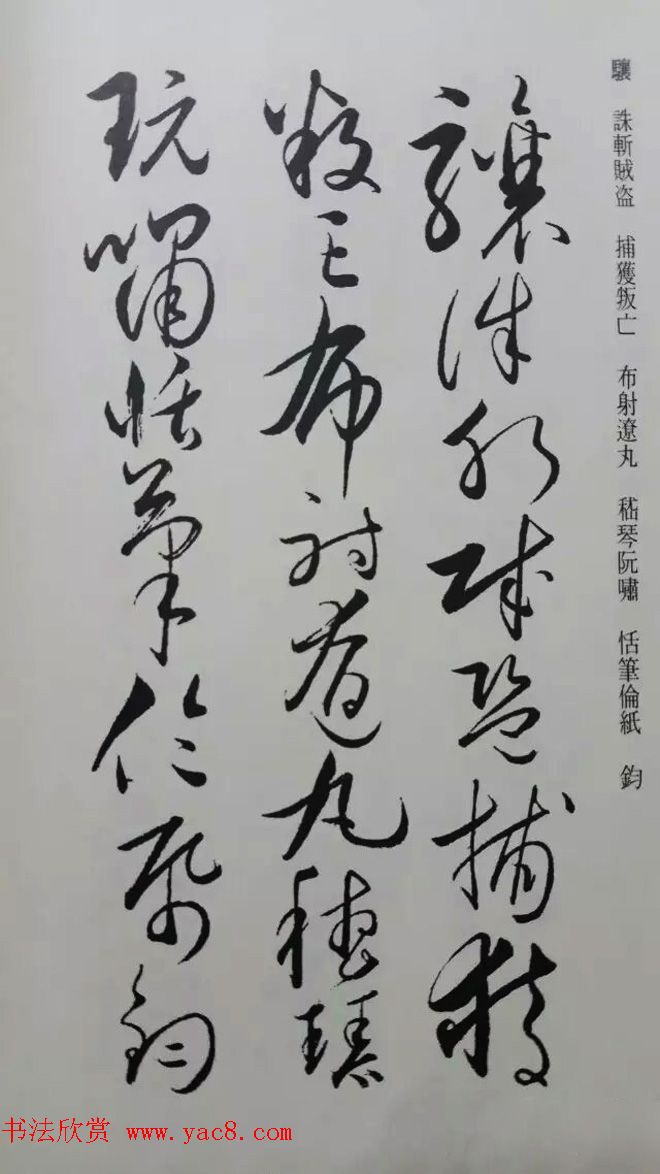 驤 誅斬賊盗 捕獲叛亡 布射遼丸 嵇琴阮嘯 恬筆倫紙 鈞
驤誅斬賊盗捕獲
叛亡布射遼丸嵇琴
阮嘯恬筆倫紙鈞
书法欣赏 www.yac8.com